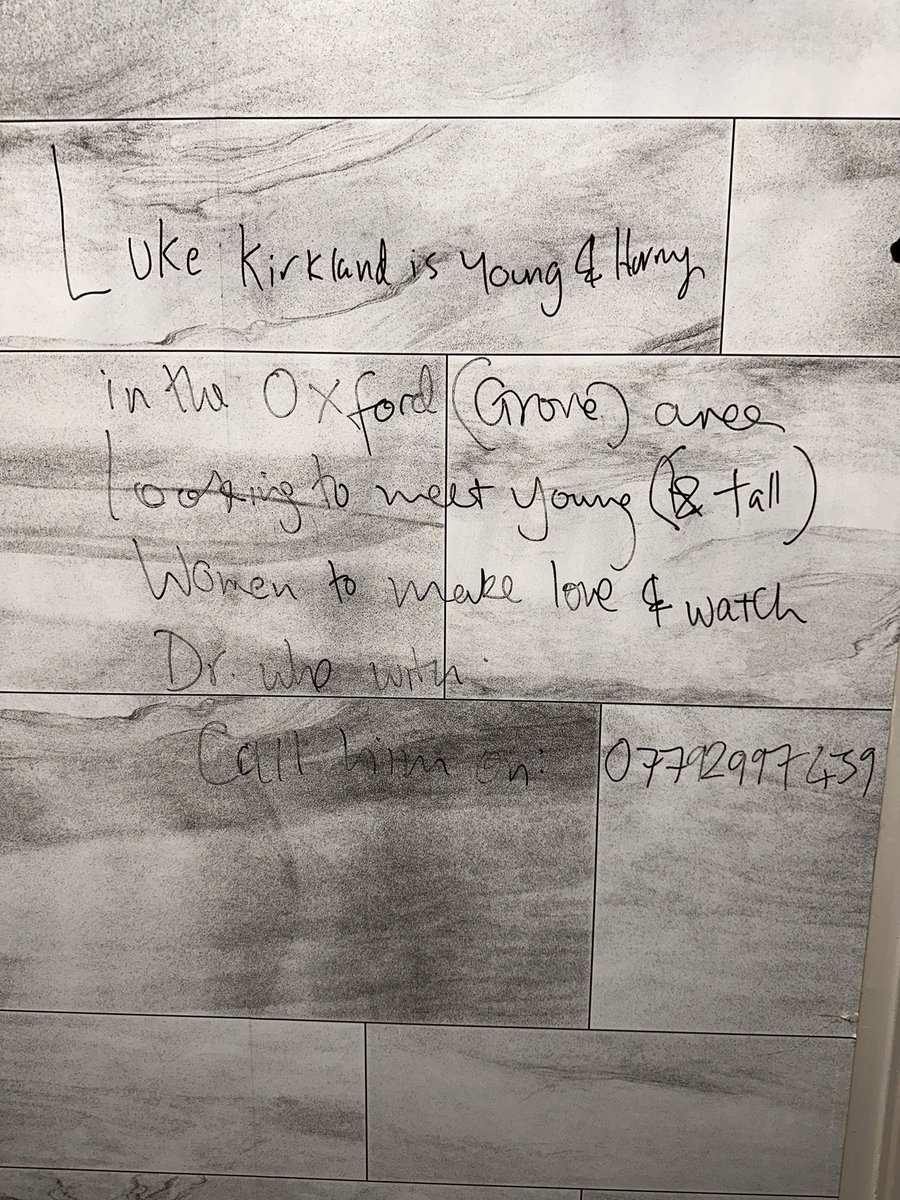 Luke Kirkland is Young & Horny
in the Oxford (Grove) area
Looking to meet young (& tall)
Women to make love & watch
Dr. who with.
Call him on: 07792997439